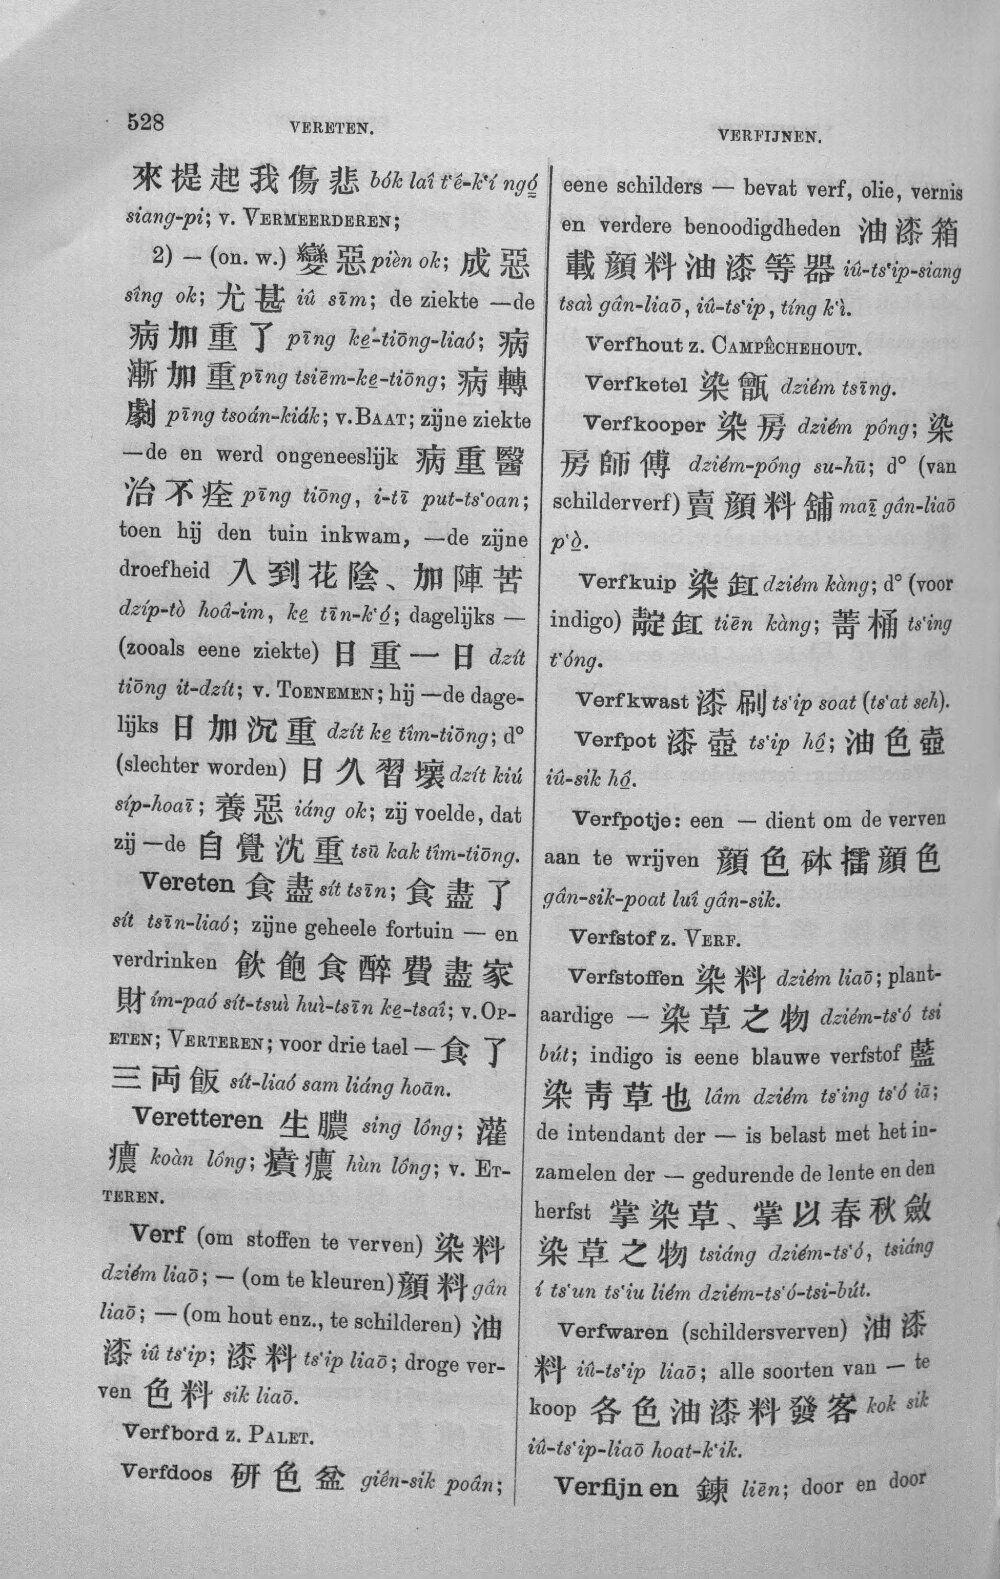 528
VERETEN.
VERFIJNEN.
來提起我傷悲 bók laî t‘ê-k‘í ngó̤
siang-pi; v. VERMEERDEREN;
2) — (on. w.) 變惡 pièn ok; 成惡
sîng ok; 尤甚 iû sīm; de ziekte —de
病加重了 pīng ke̤-tiōng-liaó; 病
漸加重 pīng tsiēm-ke̤-tiōng; 病轉
劇 pīng tsoán-kiák; v. BAAT; zijne ziekte
—de en werd ongeneeslijk 病重醫
治不痊 pīng tiōng, i-tī put-ts‘oan;
toen hij den tuin inkwam, —de zijne
droefheid 入到花陰、加陣苦
dzíp-tò hoâ-im, ke̤ tīn-k‘ó̤; dagelijks —
(zooals eene ziekte) 日重一日 dzít
tiōng it-dzít; v. TOENEMEN; hij —de dage-
lijks 日加沉重 dzít ke̤ tîm-tiōng; d°
(slechter worden) 日久習壞 dzít kiú
síp-hoaī; 養惡 iáng ok; zij voelde, dat
zij —de 自覺沈重 tsū kak tîm-tiōng.
Vereten 食盡 sít tsīn; 食盡了
sít tsīn-liaó; zijne geheele fortuin — en
verdrinken 飲飽食醉費盡家
財 ím-paó sít-tsuì huì-tsīn ke̤-tsaî; v. OP-
ETEN; VERTEREN; voor drie tael — 食了
三両飯 sít-liaó sam liáng hoān.
Veretteren 生膿 sing lông; 灌
癑 koàn lông; 癀癑 hùn lông; v. ET-
TEREN.
Verf (om stoffen te verven) 染料
dziém liaō; — (om te kleuren) 顏料 gân
liaō; — (om hout enz., te schilderen) 油
漆 iû ts‘ip; 漆料 ts‘ip liaō; droge ver-
ven 色料 sik liaō.
Verfbord z. PALET.
Verfdoos 研色盆 giên-sik poân;
eene schilders — bevat verf, olie, vernis
en verdere benoodigdheden 油漆箱
載顏料油漆等器 iû-ts‘ip-siang
tsaì gân-liaō, iû-ts‘ip, tíng k‘ì.
Verfhout z. CAMPÊCHEHOUT.
Verfketel 染甑 dziém tsīng.
Verfkooper 染房 dziém pông; 染
房師傅 dziém-pông su-hū; d° (van
schilderverf) 賣顏料舖 maī̤ gân-liaō
p‘ò̤.
Verfkuip 染缸 dziém kàng; d° (voor
indigo) 靛缸 tiēn kàng; 菁桶 ts‘ing
t‘óng.
Verfkwast 漆刷 ts‘ip soat (ts‘at seh).
Verfpot 漆壺 ts‘ip hô̤; 油色壺
iû-sik hô̤.
Verfpotje: een — dient om de verven
aan te wrijven 顏色砵擂顏色
gân-sik-poat luî gân-sik.
Verfstof z. VERF.
Verfstoffen 染料 dziém liaō; plant-
aardige — 染草之物 dziém-ts‘ó tsi
bút; indigo is eene blauwe verfstof 藍
染青草也 lâm dziém ts‘ing ts‘ó iā;
de intendant der — is belast met het in-
zamelen der — gedurende de lente en den
herfst 掌染草、掌以春秋斂
染草之物 tsiáng dziém-ts‘ó, tsiáng
í ts‘un ts‘iu liém dziém-ts‘ó-tsi-bút.
Verfwaren (schildersverven) 油漆
料 iû-ts‘ip liaō; alle soorten van — te
koop 各色油漆料發客 kok sik
iû-ts‘ip-liaō hoat-k‘ik.
Verfijnen 鍊 liēn; door en door